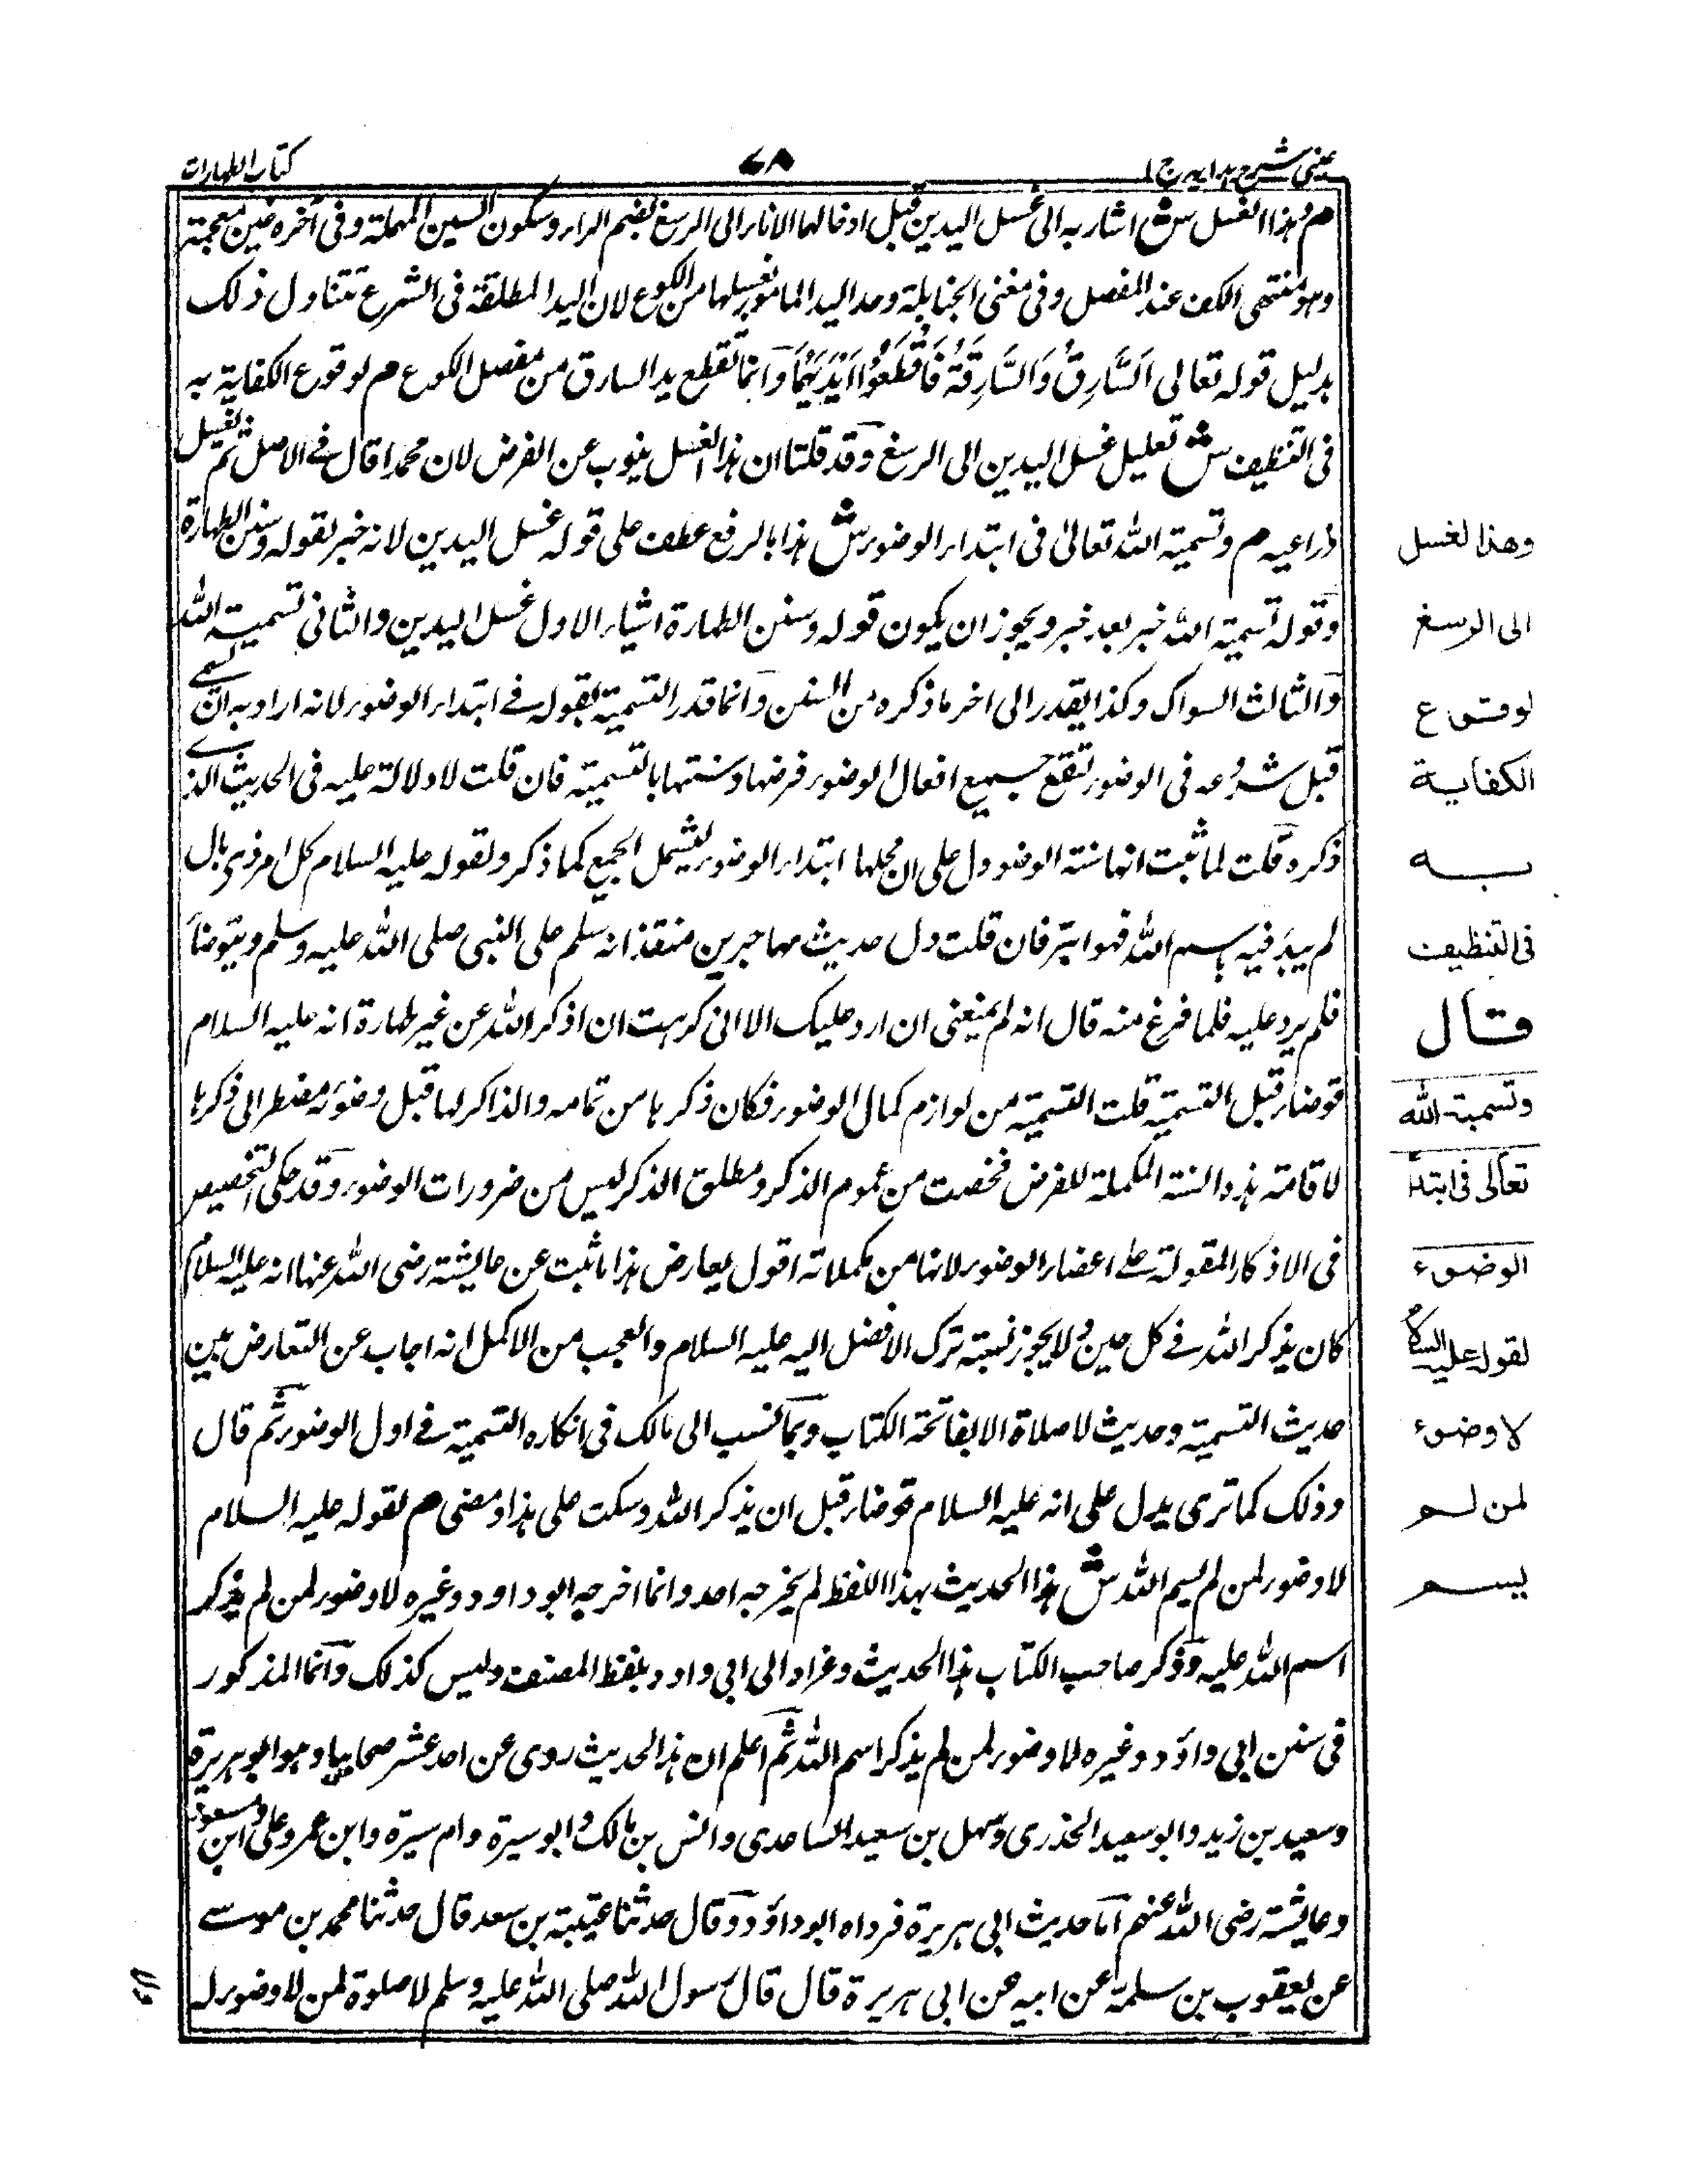 عینی شرح ہدایہ ج ۱
۷۸
کتاب الطہارات
م وہذا الغسل ش اشار بہ الی غسل الیدین قبل ادخالہا الاناء الی الرسغ بضم الراء وسکون السین المہملة وفی آخرہ غین معجمة
وہو منتھی الکف عند المفصل وفی مغنی الحنابلة وحد الید المامور بغسلہا من الکوع لان الید المطلقة فی الشرع تتناول ذلک
بدلیل قولہ تعالی اَلسَّارِقُ وَالسَّارِقَةُ فَاقْطَعُوْا اَیْدِیَہُمَا وانما تقطع ید السارق من مفصل الکوع م لوقوع الکفایة بہ
فی التنظیف ش تعلیل غسل الیدین الی الرسغ وقد قلنا ان ہذا الغسل ینوب عن الفرض لان محمدا قال فے الاصل ثم یغسل
ذراعیہ م وتسمیة اللہ تعالیٰ فی ابتداء الوضوء ش ہذا بالرفع عطف علی قولہ غسل الیدین لانہ خبر لقولہ وسنن الطہارة
وقولہ تسمیة اللہ خبر بعد خبر ویجوز ان یکون قولہ وسنن الطہارة اشیاء الاول غسل الیدین والثانی تسمیة اللہ
والثالث السواک وکذا یقدر الی اخر ما ذکرہ من السنن وانما قدر التسمیة بقولہ فے ابتداء الوضوء لانہ اراد بہ ان یسمی
قبل شروعہ فی الوضوء لتقع جمیع افعال الوضوء فرضہا وسنتہا بالتسمیة فان قلت لا دلالة علیہ فی الحدیث الذی
ذکرہ قلت لما ثبت انہا سنة الوضوء دل علی ان محلہا ابتداء الوضوء لیشمل الجمیع کما ذکر ولقولہ علیہ السلام کل امر ذی بال
لم یبدَ فیہ باسم اللہ فہو ابتر فان قلت دل حدیث مہاجر بن منقذ انہ سلم علی النبی صلی اللہ علیہ وسلم ویتوضأ
فلم یرد علیہ فلما فرغ منہ قال انہ لم یمنعنی ان ارد علیک الا انی کرہت ان اذکر اللہ عن غیر طہارة انہ علیہ السلام
توضاء قبل التسمیة قلت التسمیة من لوازم کمال الوضوء فکان ذکرہا من تمامہ والذاکر لہا قبل وضوئہ مضطر الی ذکرہا
لاقامة ہذہ السنة المکملة للفرض فخصت من عموم الذکر ومطلق الذکر لیس من ضرورات الوضوء وقد حکی التخصیص
فی الاذکار المقولة علے اعضاء الوضوء لانہا من مکملاتہ اقول یعارض ہذا ما ثبت عن عایشة رضی اللہ عنہا انہ علیہ السلام
کان یذکر اللہ فے کل حین ولا یجوز نسبة ترک الافضل الیہ علیہ السلام والعجب من الاکمل انہ اجاب عن التعارض بین
حدیث التسمیة وحدیث لا صلاة الا بفاتحة الکتاب وبما نسب الی مالک فی انکارہ التسمیة فے اول الوضوء ثم قال
وذلک کما تری یدل علی انہ علیہ السلام توضاء قبل ان یذکر اللہ وسکت علی ہذا ومضی م لقولہ علیہ السلام
لا وضوء لمن لم یسم اللہ ش ہذا الحدیث بہذا اللفظ لم یخرجہ احد وانما اخرجہ ابو داود وغیرہ لا وضوء لمن لم یذکر
اسم اللہ علیہ وذکر صاحب الکتاب ہذا الحدیث وعزاہ الی ابی داود بلفظ المصنف ولیس کذلک وانما المذکور
فی سنن ابی داؤد وغیرہ لا وضوء لمن لم یذکر اسم اللہ ثم اعلم ان ہذا الحدیث روی عن احد عشر صحابیا وہو ابو ہریرة
وسعید بن زید وابو سعید الخذری وسہل بن سعید الساعدی وانس بن مالک وابو سبرة وام سبرة وابن عمر وعلی وابن مسعود
وعایشة رضی اللہ عنہم اما حدیث ابی ہریرة فرواہ ابو داؤد وقال حدثنا عتیبة بن سعد قال حدثنا محمد بن موسے
عن یعقوب بن سلمة عن ابیہ عن ابی ہریرة قال قال رسول اللہ صلی اللہ علیہ وسلم لا صلوة لمن لا وضوء لہ
وهذا الغسل
الی الرسغ
لوقوع
الکفایة
به
فی التنظیف
قال
وتسمیة الله
تعالی فی ابتداء
الوضوء
لقوله علیه السلام
لا وضوء
لمن لم
یسم